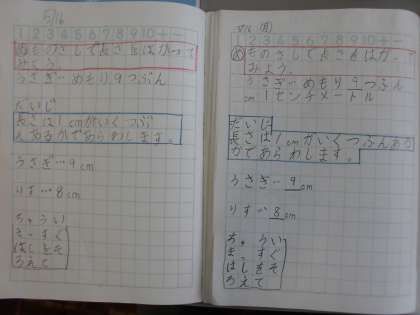 5/16
1 2 3 4 5 6 7 8 9 10 + −
めものさしで長さをはかって
みよう。
うさぎ… めもり9つぶん
だいじ
長さは1cmがいくつぶ
んあるかであらわします。
うさぎ…9cm
りす…8cm
ちゅうい
ま っすぐ
はしをそ
ろえて
5/16 (月)
1 2 3 4 5 6 7 8 9 10 + −
め ものさしで長さをはかっ
てみよう。
うさぎ… めもり 9つぶん
cm 1センチメートル
だいじ
長さは1cmがいくつぶんある
かであらわします。
うさぎ… 9cm
りす… 8cm
ちゅうい
ま っすぐ
はしをそ
ろえて